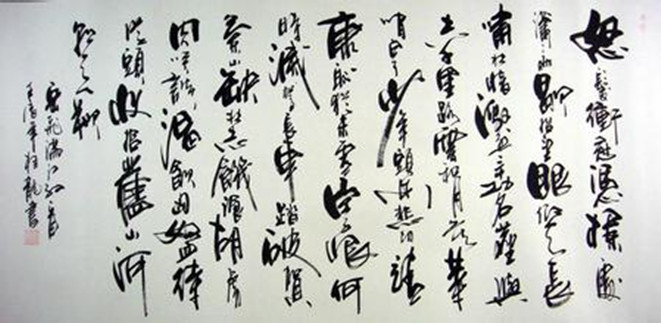 怒髮衝冠憑欄處
瀟瀟雨歇抬望眼仰天長
嘯壯懷激烈三十功名塵與
土八千里路雲和月莫等
閒白了少年頭空悲切靖
康恥猶未雪臣子恨何
時滅駕長車踏破賀
蘭山缺壯志飢餐胡虜
肉笑談渴飲匈奴血待
從頭收拾舊山河
朝天闕
岳飛滿江紅
年龍書